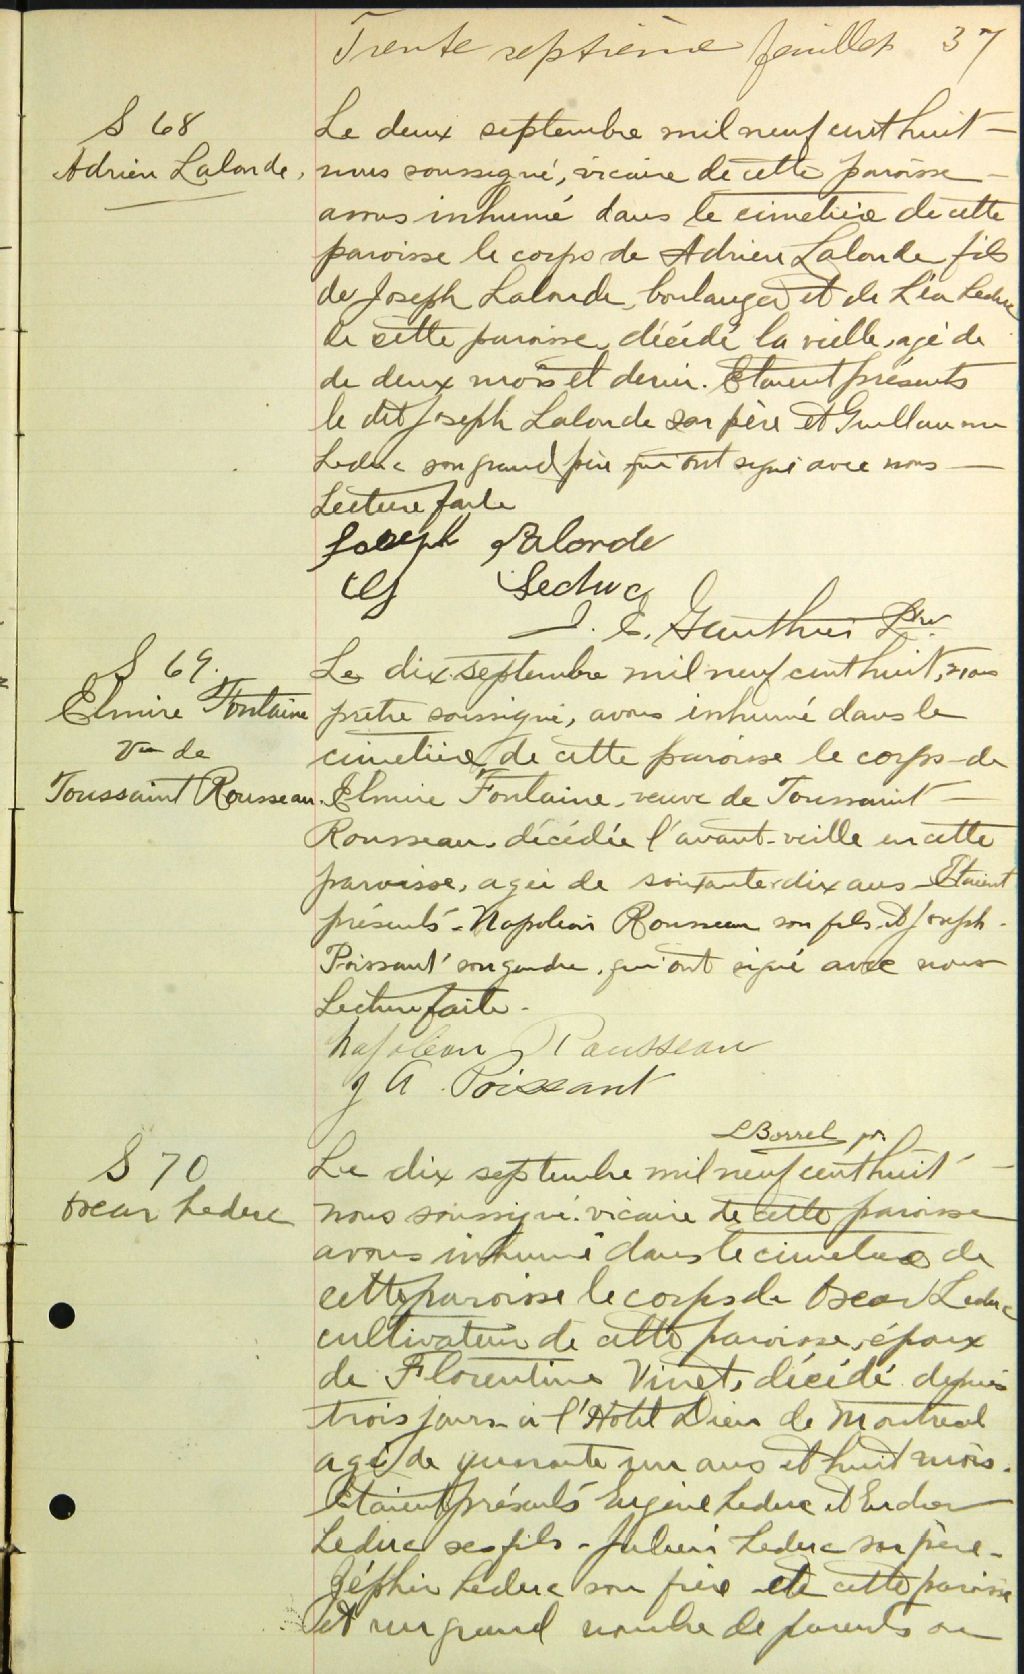 Trente septième feuillet 37
S 68
Adrien Lalonde,
Le deux septembre mil neuf cent huit —
nous soussigné, vicaire de cette paroisse —
avons inhumé dans le cimetière de cette
paroisse le corps de Adrien Lalonde fils
de Joseph Lalonde, boulanger et de Léa Leduc
de cette paroisse, décédé la veille, agé de
de deux mois et demi. Etaient présents
le dit Joseph Lalonde son père et Guillaume
Leduc son grand père qui ont signé avec nous —
Lecture faite
Joseph Lalonde
G Leduc
J. E. Gauthier Ptre
S 69.
Elmire Fontaine
Vve de
Toussaint Rousseau
Le dix septembre mil neuf cent huit, nous
prêtre soussigné, avons inhumé dans le
cimetière de cette paroisse le corps de
Elmire Fontaine, veuve de Toussaint —
Rousseau, décédée l'avant-veille en cette
paroisse, agée de soixante-dix ans - Etaient
présents - Napoléon Rousseau son fils et Joseph -
Poissant son gendre, qui ont signé avec nous
Lecture faite -
Napoléon Rousseau
J A. Poissant
L Borrel ptr
S 70
Oscar Leduc
Le dix septembre mil neuf cent huit —
nous soussigné, vicaire de cette paroisse
avons inhumé dans le cimetière de
cette paroisse le corps de Oscar Leduc
cultivateur de cette paroisse, époux
de Florentine Vinet, décédé depuis
trois jours à l'Hotel Dieu de Montreal
agé de quarante un ans et huit mois.
Etaient présents Eugène Leduc et
Leduc ses fils - Julien Leduc son père -
Zéphir Leduc son frère de cette paroisse
et un grand nombre de parents ou